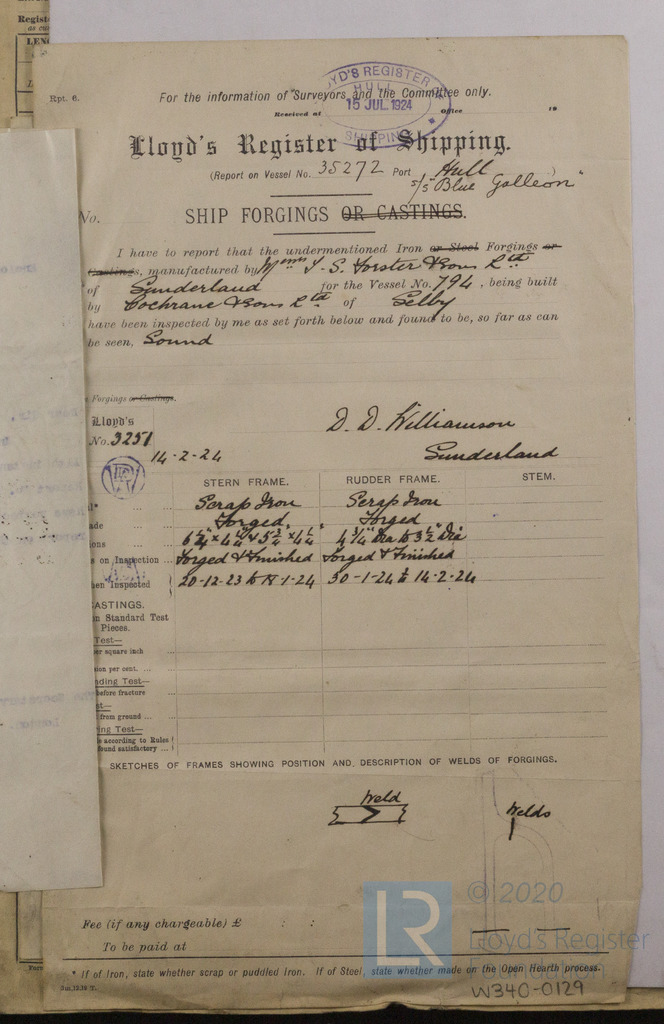 Regist
LEN
Rpt. 6.
For the information of Surveyors and the Committee only.
LLOYD'S REGISTER
HULL
15 JUL 1924
SHIPPING
Received at Office 19
Lloyd's Register of Shipping.
(Report on Vessel No. 35272 Port Hull
S/S "Blue Galleon"
No.
SHIP FORGINGS OR CASTINGS.
I have to report that the undermentioned Iron or Steel Forgings or
Castings, manufactured by Messrs T. S. Forster & Sons Ltd
of Sunderland for the Vessel No. 794, being built
by Cochrane & Sons Ltd of Selby
have been inspected by me as set forth below and found to be, so far as can
be seen, Sound
Forgings or Castings.
Lloyd's
No. 3251
14-2-24
D. D. Williamson
Sunderland
STERN FRAME. RUDDER FRAME. STEM.
Scrap Iron Scrap Iron
Forged Forged
4 3/4" Dia to 3 1/2" Dia
s on Inspection Forged & Finished Forged & Finished
hen Inspected 20-12-23 to 1-24 30-1-24 to 14-2-24
CASTINGS.
n Standard Test
Pieces.
Test—
er square inch
ion per cent.
nding Test—
before fracture
st—
from ground
ing Test—
e according to Rules
found satisfactory
SKETCHES OF FRAMES SHOWING POSITION AND DESCRIPTION OF WELDS OF FORGINGS.
Weld
Welds
Fee (if any chargeable) £ : :
To be paid at
* If of Iron, state whether scrap or puddled Iron. If of Steel, state whether made on the Open Hearth process.
LR
© 2020
Lloyd's Register
Foundation
W340-0129